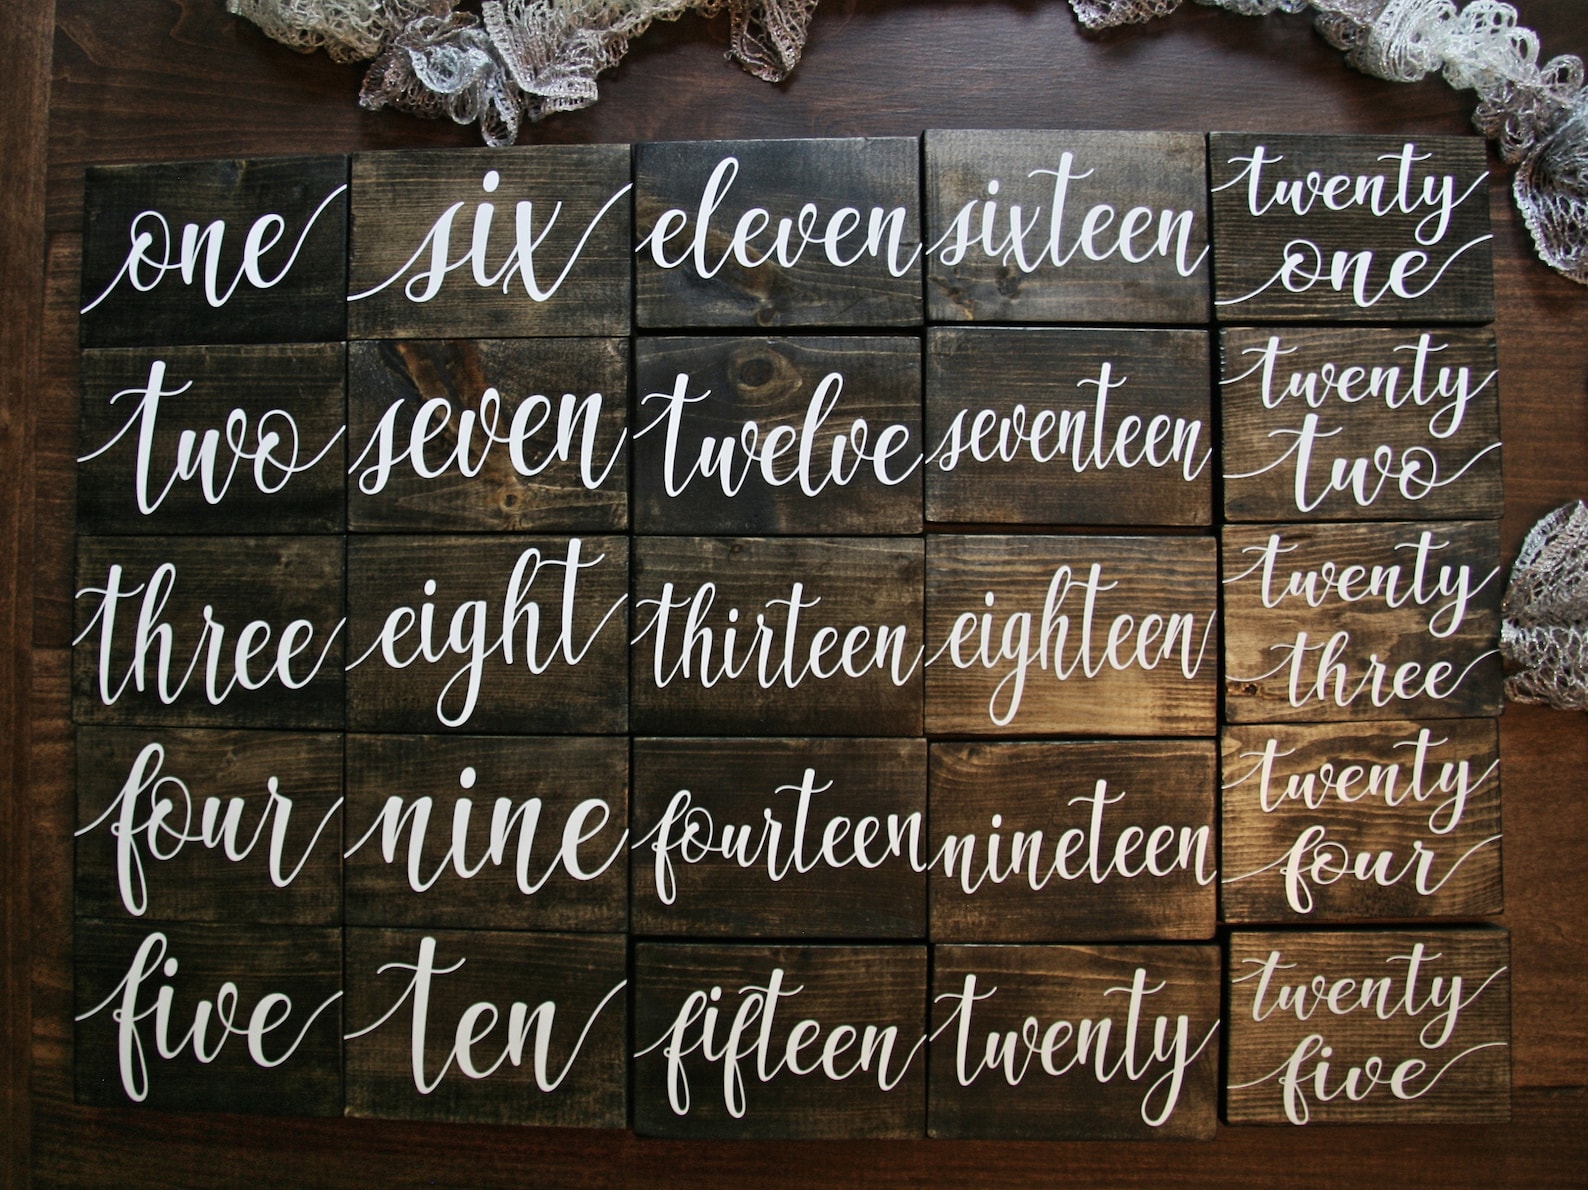 one
six
eleven
sixteen
twenty
one
two
seven
twelve
seventeen
twenty
two
three
eight
thirteen
eighteen
twenty
three
four
nine
fourteen
nineteen
twenty
four
five
ten
fifteen
twenty
twenty
five